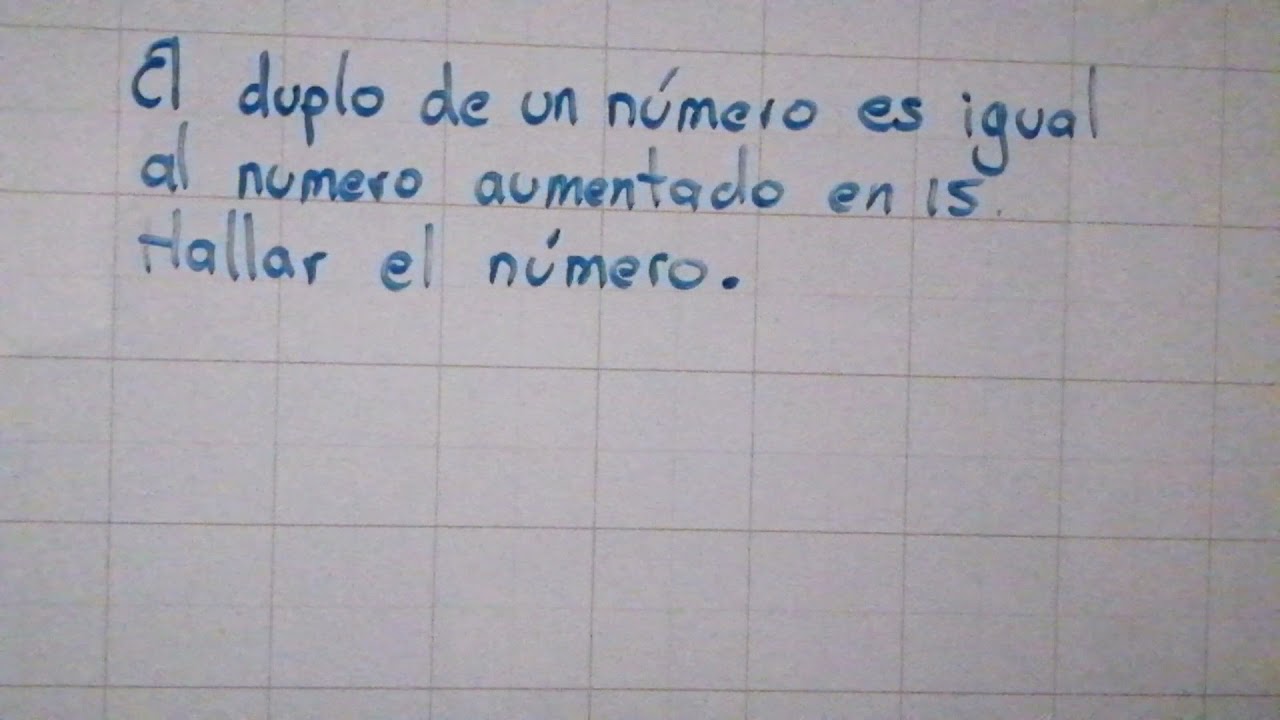 El duplo de un número es igual
al numero aumentado en 15.
Hallar el número.